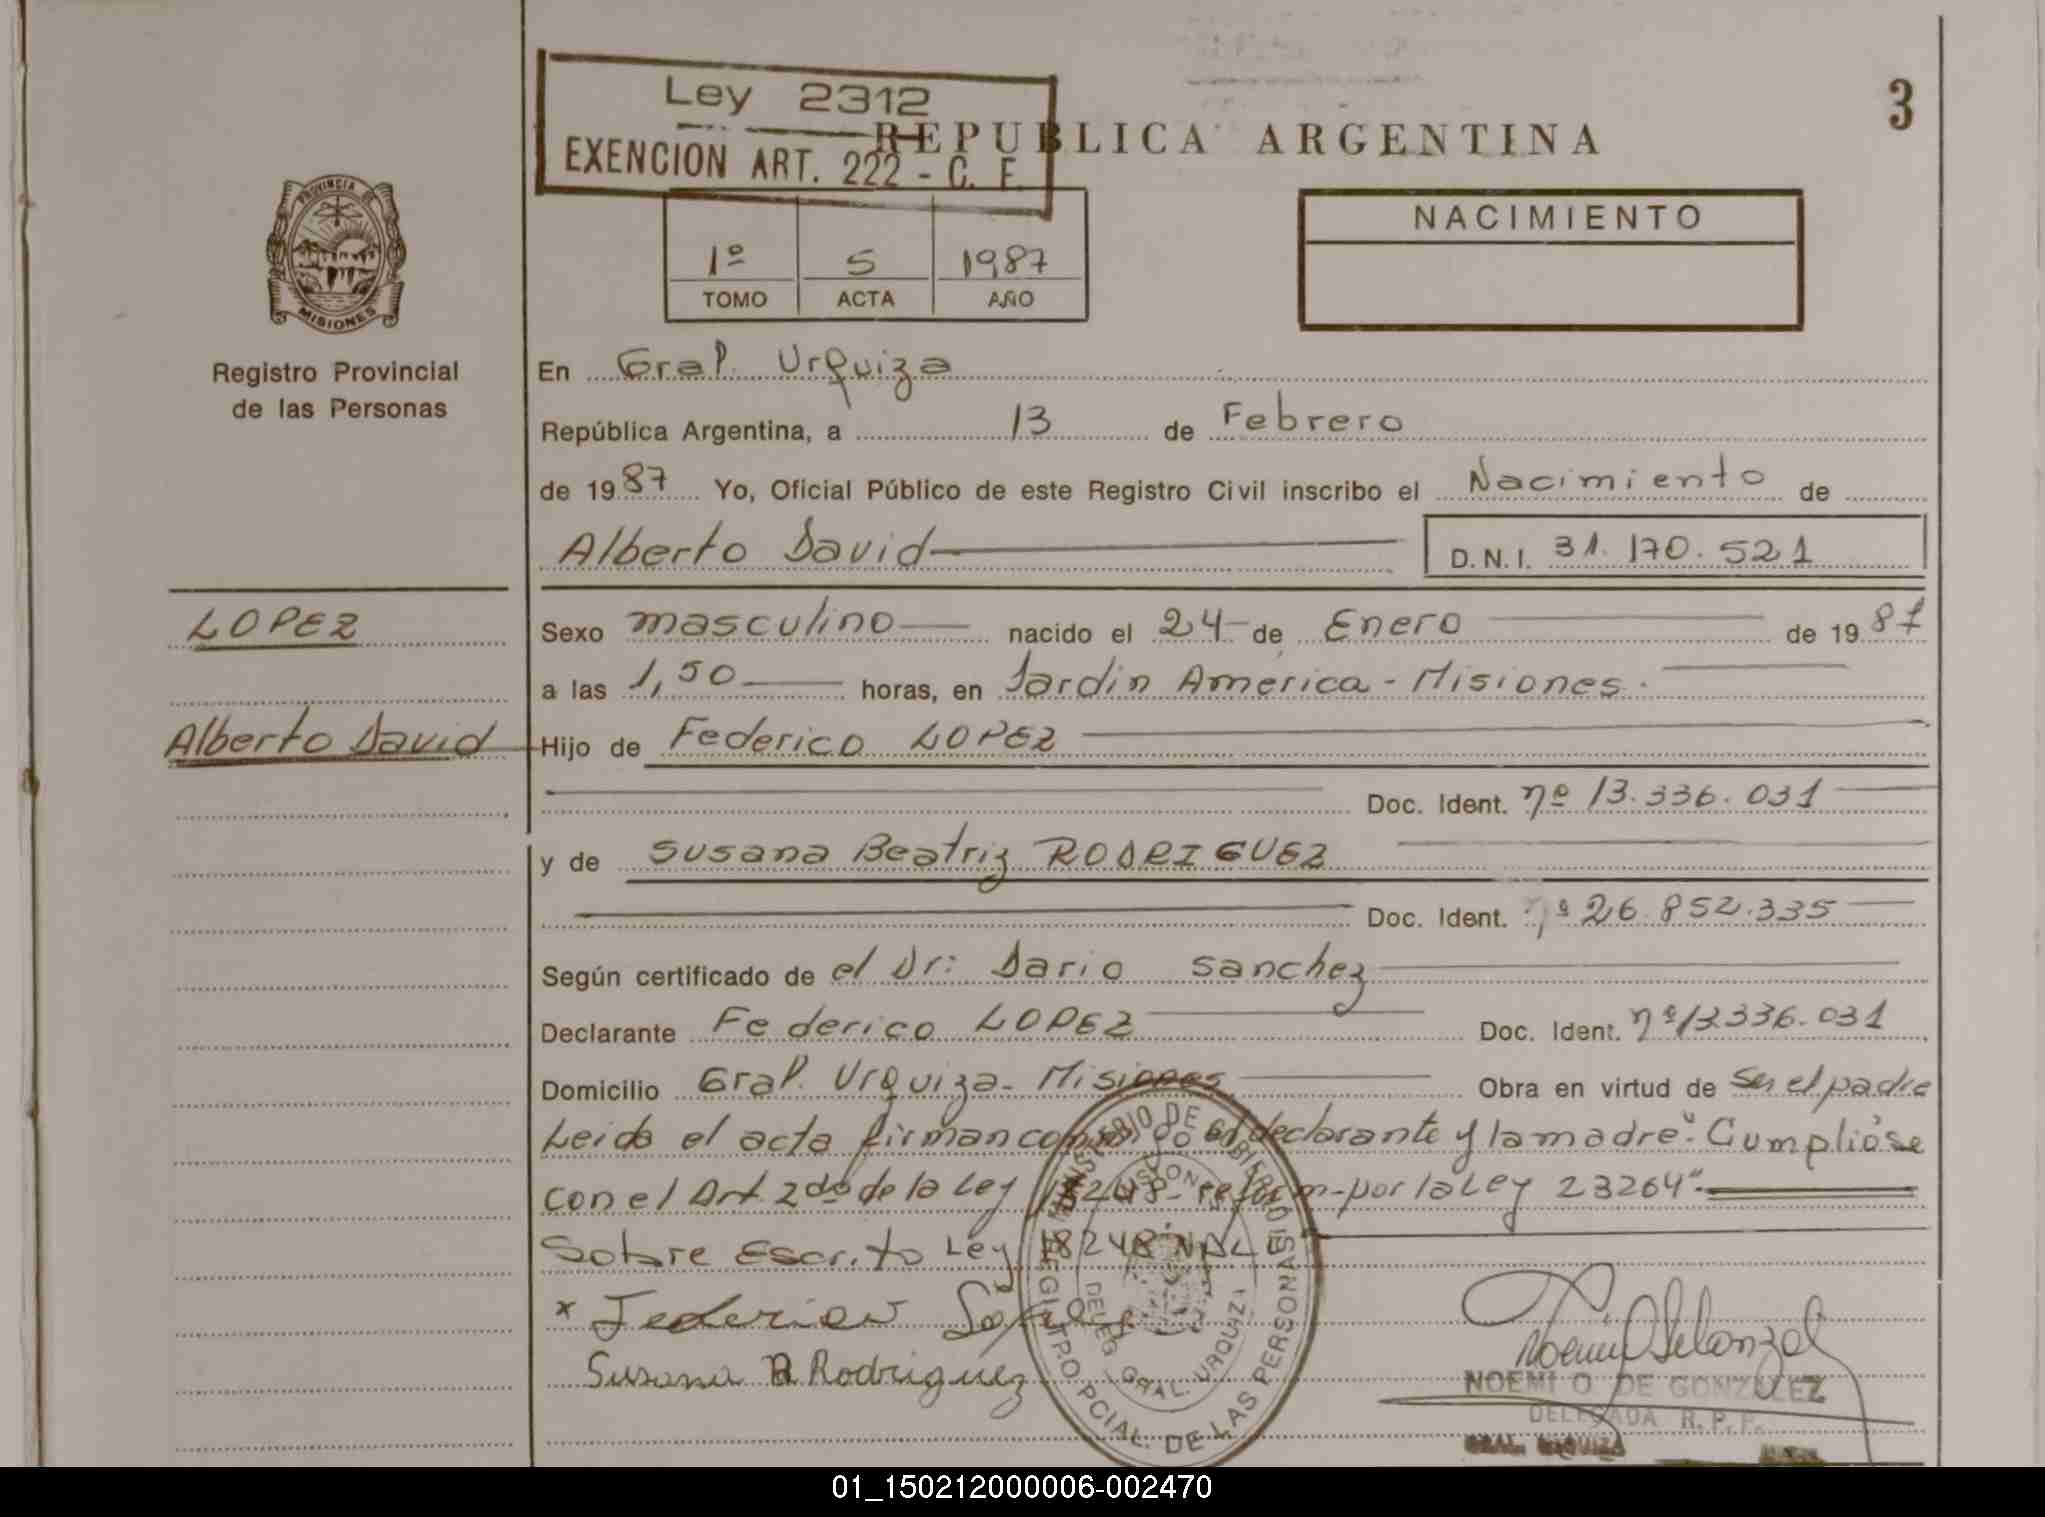 Ley 2312
EXENCION ART. 222 - C. F.
REPUBLICA ARGENTINA
3
PROVINCIA DE
MISIONES
Registro Provincial
de las Personas
1º 5 1987
TOMO ACTA AÑO
NACIMIENTO
En Gral. Urquiza
República Argentina, a 13 de Febrero
de 1987 Yo, Oficial Público de este Registro Civil inscribo el Nacimiento de
Alberto David D.N.I. 31.170.521
LOPEZ
Alberto David
Sexo masculino nacido el 24 de Enero de 1987
a las 1,50 horas, en Jardín América - Misiones.
Hijo de Federico LOPEZ
Doc. Ident. nº 13.336.031
y de Susana Beatriz RODRIGUEZ
Doc. Ident. nº 26.852.335
Según certificado de el Dr: Dario Sanchez
Declarante Federico LOPEZ Doc. Ident. nº 13336.031
Domicilio Gral. Urquiza - Misiones Obra en virtud de Ser el padre
Leida el acta firman conmigo el declarante y la madre." Cumplióse
con el Art. 2do de la Ley 18248- reform-por la Ley 23264"
Sobre Escrito Ley 18248 NAL
x Federico López
Susana B Rodriguez
MINISTERIO DE GOBIERNO
MISIONES
REGISTRO PCIAL. DE LAS PERSONAS
DELEG. GRAL. URQUIZA
NOEMI O. DE GONZALEZ
DELEGADA R.P.P.
GRAL. URQUIZA
01_150212000006-002470